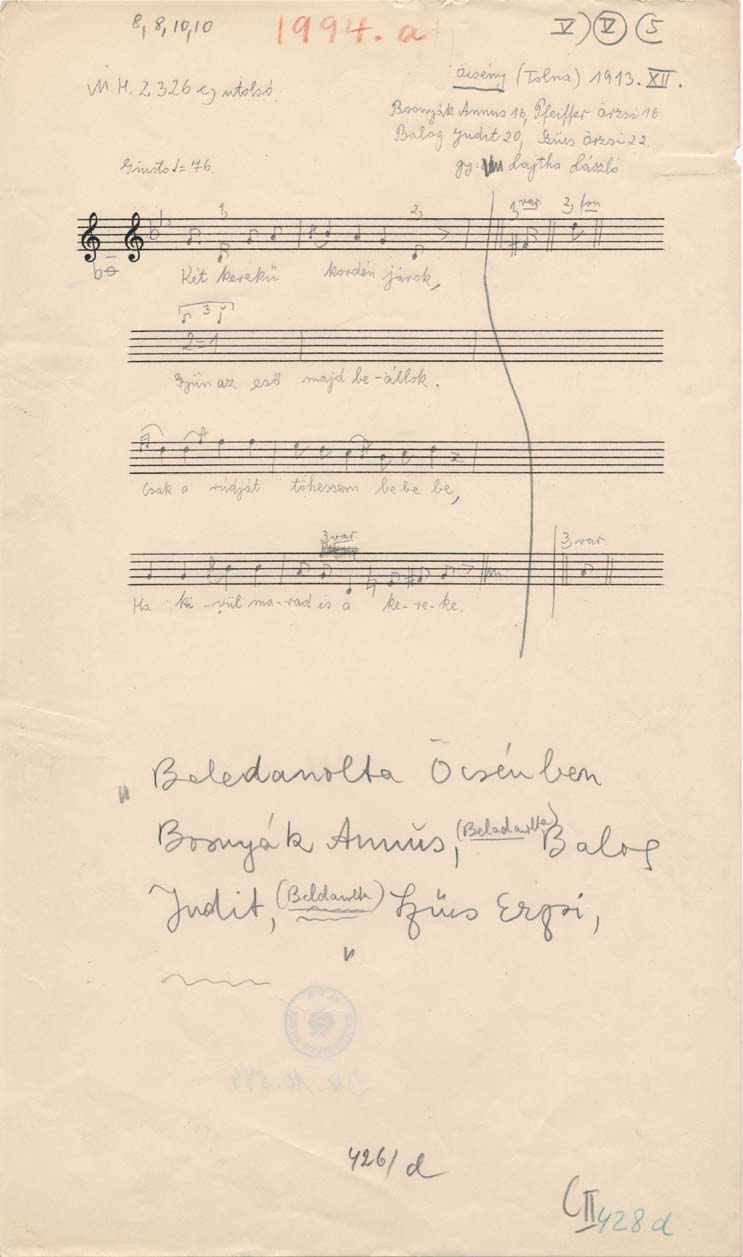 8, 8, 10, 10 1994. a V) V 5
M. H. 2326 c, utolsó. Öcsény (Tolna) 1913. XII.
Bosnyák Annus 16, Pfeiffer Örzsi 16
Balog Judit 20, Szűcs Örzsi 22.
Giusto ♩= 76. gy: Lajtha László
1, 2, 1, var. 2, fon
Két kerekű kordén járok,
3
2=1
Gyün az eső majd be-állok.
Csak a rúdját tőhessem be be be,
3, var. 3, var.
Ha ki-vül ma-rad is a ke-re-ke.
Beledanolta Öcsénben
Bosnyák Annus, (Beladanolta) Balog
Judit, (Beldanolta) Szűcs Erzsi,
426/d
C II 428 d